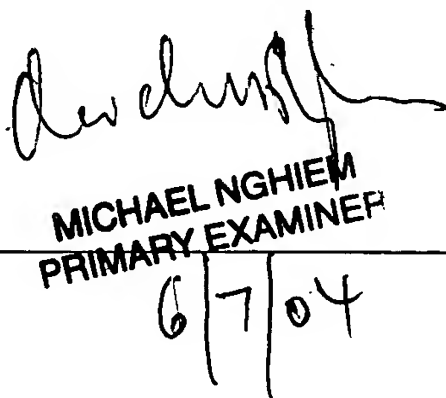 MICHAEL NGHIEM
PRIMARY EXAMINER
6/7/04